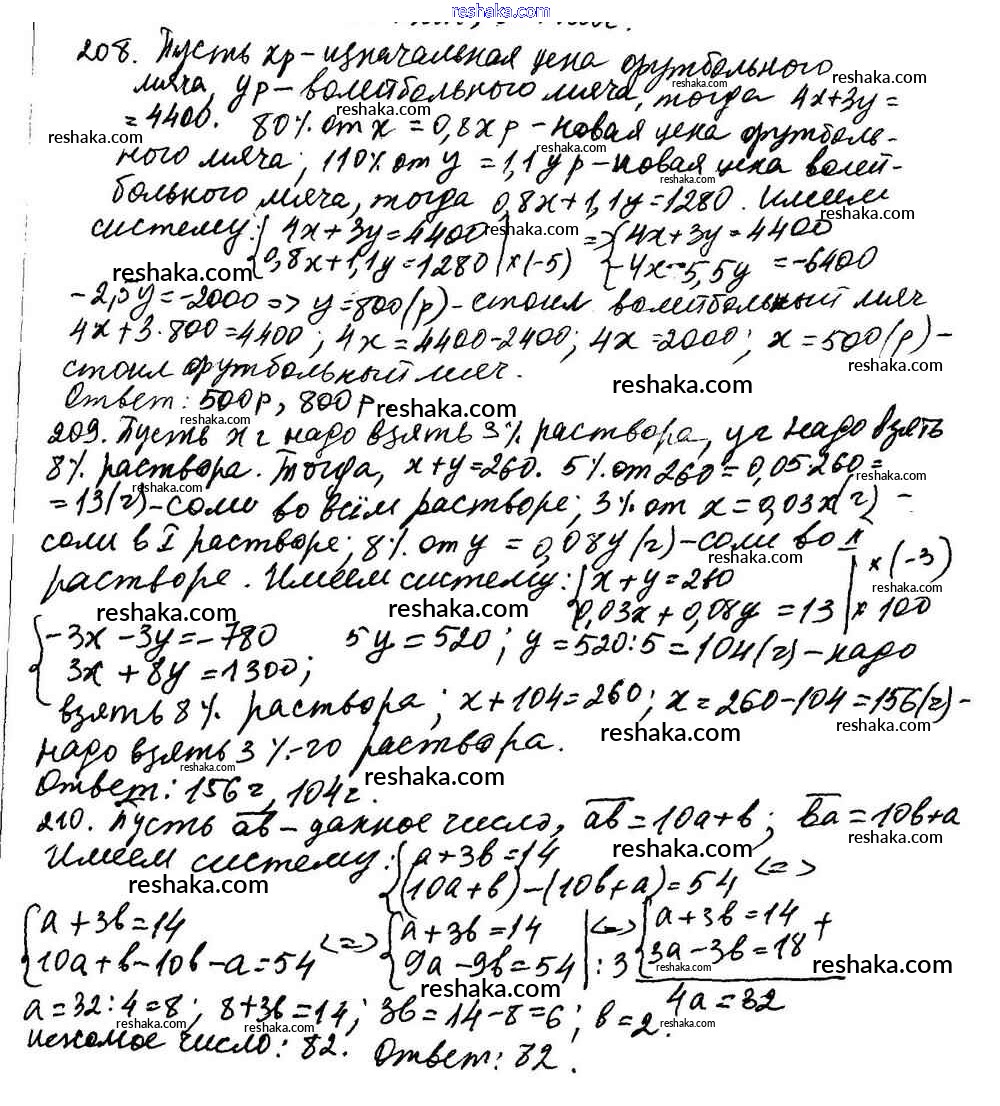 reshaka.com
208. Пусть xр – изначальная цена футбольного
мяча, yр – волейбольного мяча, тогда 4x+3y=
=4400. 80% от x = 0,8x р – новая цена футболь-
ного мяча; 110% от y = 1,1y р – новая цена волей-
больного мяча, тогда 0,8x+1,1y=1280. Имеем
систему: { 4x+3y=4400 | => { 4x+3y=4400
0,8x+1,1y=1280 | ×(-5) -4x-5,5y=-6400
-2,5y=-2000 => y=800(р) – стоил волейбольный мяч
4x+3·800=4400; 4x=4400-2400; 4x=2000; x=500(р) –
стоил футбольный мяч.
Ответ: 500р, 800р
209. Пусть x г надо взять 3% раствора, y г надо взять
8% раствора. Тогда, x+y=260. 5% от 260=0,05·260=
=13(г) – соли во всём растворе; 3% от x=0,03x(г) –
соли в I растворе; 8% от y=0,08y(г) – соли во II
растворе. Имеем систему: { x+y=260 | ×(-3)
0,03x+0,08y=13 | ×100
{ -3x-3y=-780 5y=520; y=520:5=104(г) – надо
3x+8y=1300;
взять 8% раствора; x+104=260; x=260-104=156(г) –
надо взять 3%-го раствора.
Ответ: 156г, 104г.
210. Пусть ab – данное число, ab=10a+b; ba=10b+a
Имеем систему: { a+3b=14
(10a+b)-(10b+a)=54 <=>
{ a+3b=14 <=> { a+3b=14 | <=> { a+3b=14 +
10a+b-10b-a=54 9a-9b=54 | :3 3a-3b=18
4a=32
a=32:4=8; 8+3b=14; 3b=14-8=6; b=2.
искомое число: 82. Ответ: 82.
reshaka.com